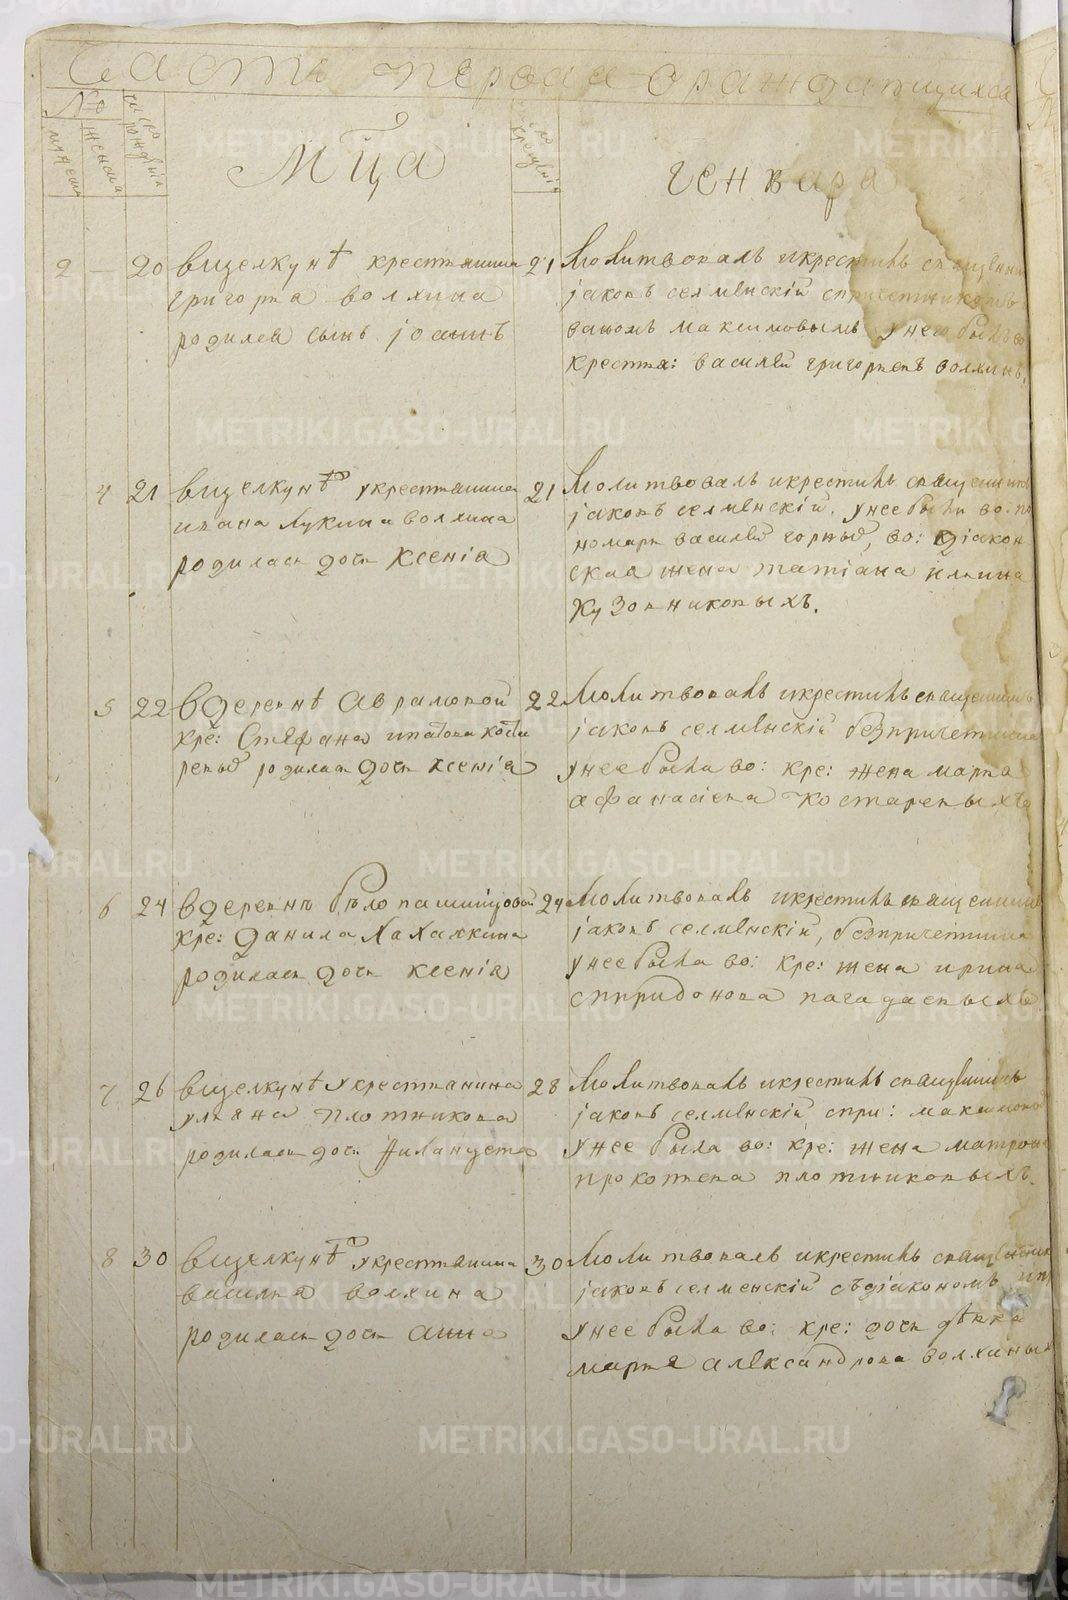 Часть первая о раждающихся
No
мужеска
женска
число рождѣнія
Мⷭ҇ца
число крещѣнія
генваря
2 - 20 вщелкунѣ крестянина
григорья волхина
родился сынъ іоаннъ
21 Молитвовалъ икрестилъ священни
іаковъ селмѣнскій спричетникомъ
максимовымъ унего былъ во
крестя: василей григорьевъ волхинъ.
4 21 вщелкунѣ укрестянина
ивана лукина волхина
родилась дочь ксенія
21 Молитвовалъ икрестилъ священник
іаковъ селмѣнскій, унее были во: по
номарь василей горныхъ, во: діакон
ская жена татіана ильина
кузовниковыхъ.
5 22 вдеревнѣ аврамовой
кре: Стефана ипатова коста
ревыхъ родилась дочь ксенія
22 Молитвовалъ икрестилъ священникъ
іаковъ селмѣнскій безпричетника
унее была во: кре: жена марѳа
афанасіева костаревыхъ
6 24 вдеревнѣ бѣлопашинцовой
кре: данила
родилась дочь ксенія
24 Молитвовалъ икрестилъ священник
іаковъ селмѣнскій, безпричетника
унее была во: кре: жена ирина
спиридонова
7 26 вщелкунѣ укрестянина
ульяна плотникова
родилась дочь
28 Молитвовалъ икрестилъ священникъ
іаковъ селмѣнскій спри: максимовы
унее была во: кре: жена матрона
прокопьева плотниковыхъ.
8 30 вщелкунѣ укрестянина
василья волхина
родилась дочь анна
30 Молитвовалъ икрестилъ священник
іаковъ селменскій съдіакономъ
унее была во: кре: дочь дѣвка
марья александрова волхиных
METRIKI.GASO-URAL.RU